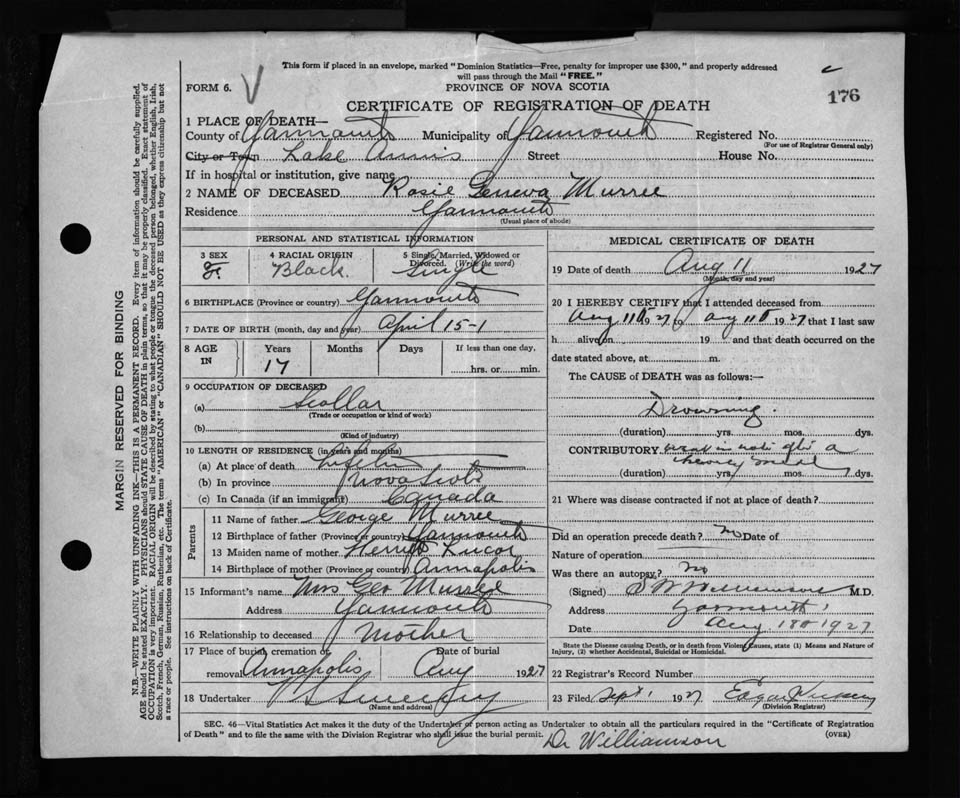 This form if placed in an envelope, marked "Dominion Statistics—Free, penalty for improper use $300," and properly addressed
will pass through the Mail "FREE."
FORM 6.
PROVINCE OF NOVA SCOTIA
176
CERTIFICATE OF REGISTRATION OF DEATH
1 PLACE OF DEATH—
County of Yarmouth Municipality of Yarmouth Registered No.
(For use of Registrar General only)
City or Town Lake Annis Street House No.
If in hospital or institution, give name
2 NAME OF DECEASED Rosie Geneva Murree
Residence Yarmouth
(Usual place of abode)
PERSONAL AND STATISTICAL INFORMATION
3 SEX 4 RACIAL ORIGIN 5 Single, Married, Widowed or Divorced. (Write the word)
F. Black. Single
6 BIRTHPLACE (Province or country) Yarmouth
7 DATE OF BIRTH (month, day and year) April 15-1
8 AGE IN Years Months Days If less than one day,
17 hrs. or min.
9 OCCUPATION OF DECEASED
(a) Scollar
(Trade or occupation or kind of work)
(b)
(Kind of industry)
10 LENGTH OF RESIDENCE (in years and months)
(a) At place of death
(b) In province Nova Scotia
(c) In Canada (if an immigrant) Canada
Parents
11 Name of father George Murree
12 Birthplace of father (Province or country) Yarmouth
13 Maiden name of mother
14 Birthplace of mother (Province or country) Annapolis
15 Informant's name Mrs Geo Murree
Address Yarmouth
16 Relationship to deceased Mother
17 Place of burial, cremation or removal Annapolis Date of burial Aug 1927
18 Undertaker V S Sweeny
(Name and address)
MEDICAL CERTIFICATE OF DEATH
19 Date of death Aug 11 1927
(Month, day and year)
20 I HEREBY CERTIFY that I attended deceased from
Aug 11th 1927 to Aug 11th 1927 that I last saw
h alive on 19 and that death occurred on the
date stated above, at m.
The CAUSE of DEATH was as follows:—
Drowning.
(duration) yrs. mos. dys.
CONTRIBUTORY went in after a
heavy meal
(duration) yrs. mos. dys.
21 Where was disease contracted if not at place of death?
Did an operation precede death? no Date of
Nature of operation
Was there an autopsy? no
(Signed) Williamson M.D.
Address Yarmouth
Date Aug 18th 1927
State the Disease causing Death, or in death from Violent Causes, state (1) Means and Nature of
Injury, (2) whether Accidental, Suicidal or Homicidal.
22 Registrar's Record Number
23 Filed Sept 1 1927 Edgar
(Division Registrar)
SEC. 46—Vital Statistics Act makes it the duty of the Undertaker or person acting as Undertaker to obtain all the particulars required in the "Certificate of Registration
of Death" and to file the same with the Division Registrar who shall issue the burial permit.
(OVER)
Dr Williamson
MARGIN RESERVED FOR BINDING
N.B.—WRITE PLAINLY WITH UNFADING INK—THIS IS A PERMANENT RECORD. Every item of information should be carefully supplied.
AGE should be stated EXACTLY. PHYSICIANS should STATE CAUSE OF DEATH in plain terms, so that it may be properly classified. Exact statement of
OCCUPATION is very important. RACIAL ORIGIN will be described by stating to what people or tongue the deceased person belonged, whether English, Irish,
Scotch, French, German, Russian, Ruthenian, etc. The terms "AMERICAN" or "CANADIAN" SHOULD NOT BE USED as they express citizenship but not
a race or people. See instructions on back of Certificate.